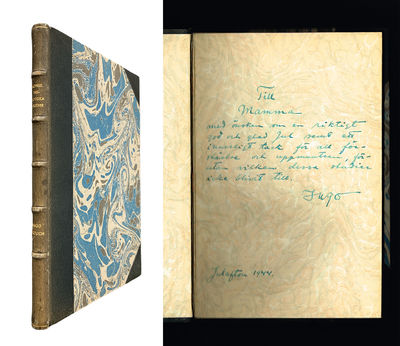 Till
Mamma
med önskan om en riktigt
god och glad Jul samt ett
innerligt tack för all för-
ståelse och uppmuntran, för-
utan vilken dessa studier
icke blivit till.
Julafton 1944.